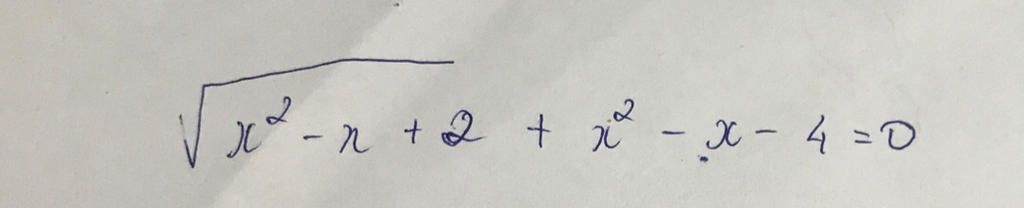 √(x² - x + 2) + x² - x - 4 = 0